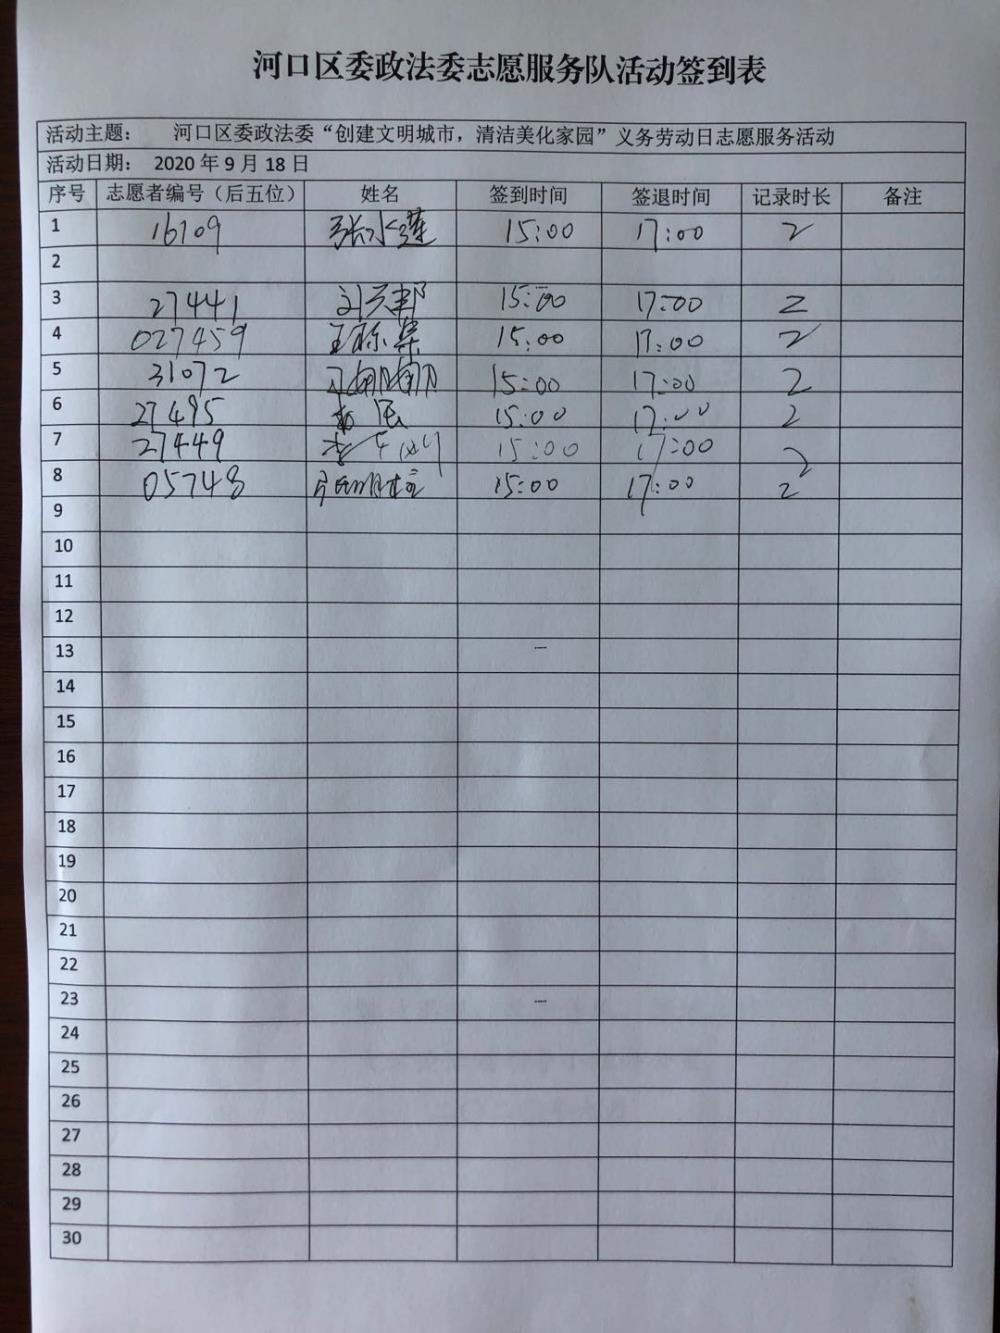 河口区委政法委志愿服务队活动签到表
活动主题： 河口区委政法委“创建文明城市，清洁美化家园”义务劳动日志愿服务活动
活动日期： 2020 年 9 月 18 日
序号 志愿者编号（后五位） 姓名 签到时间 签退时间 记录时长 备注
1 16709 张水莲 15:00 17:00 2
2
3 27441 15:00 17:00 2
4 027459 15:00 17:00 2
5 31072 15:00 17:00 2
6 27495 15:00 17:00 2
7 27449 15:00 17:00 2
8 05748 15:00 17:00 2
9
10
11
12
13
14
15
16
17
18
19
20
21
22
23
24
25
26
27
28
29
30